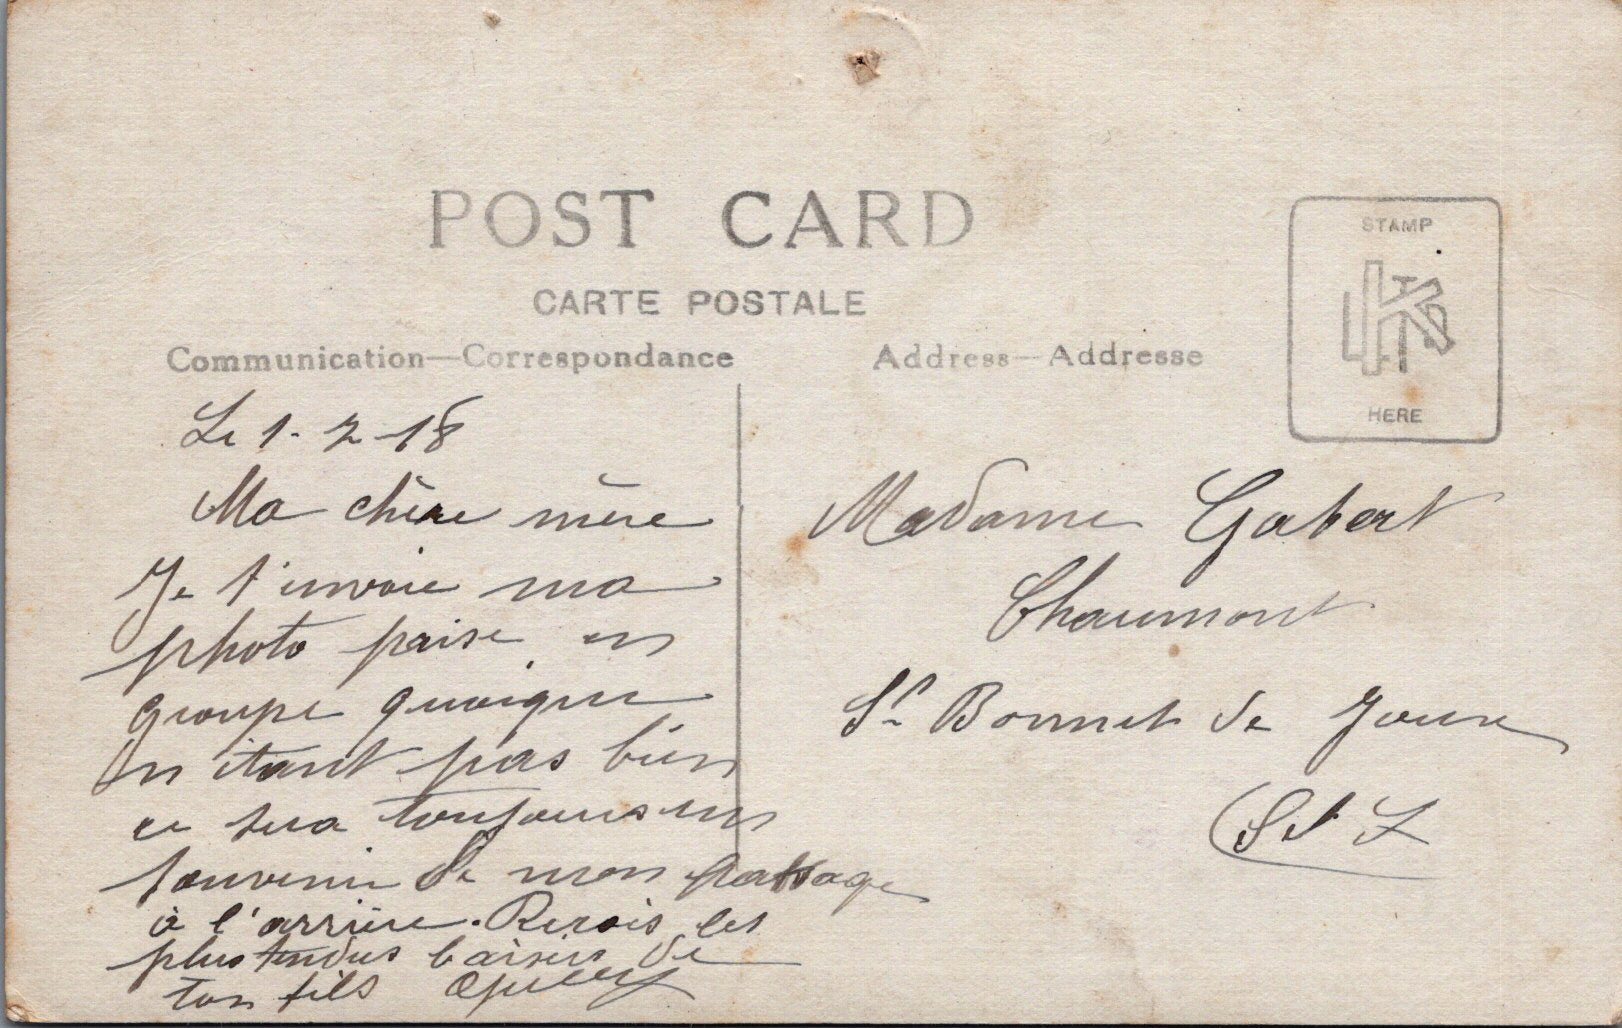 POST CARD
CARTE POSTALE
Communication—Correspondance
Address—Addresse
STAMP
HERE
Le 1-2-18
Ma chère mère
Je t'envoie ma
photo paise en
groupe quoique
n'étant pas bien
ce sera toujours un
souvenir de mon passage
à l'arrière. Reçois les
plus tendres baisers de
ton fils
Madame Gabert
Chaumont
St Bonnet de Joux
S et L